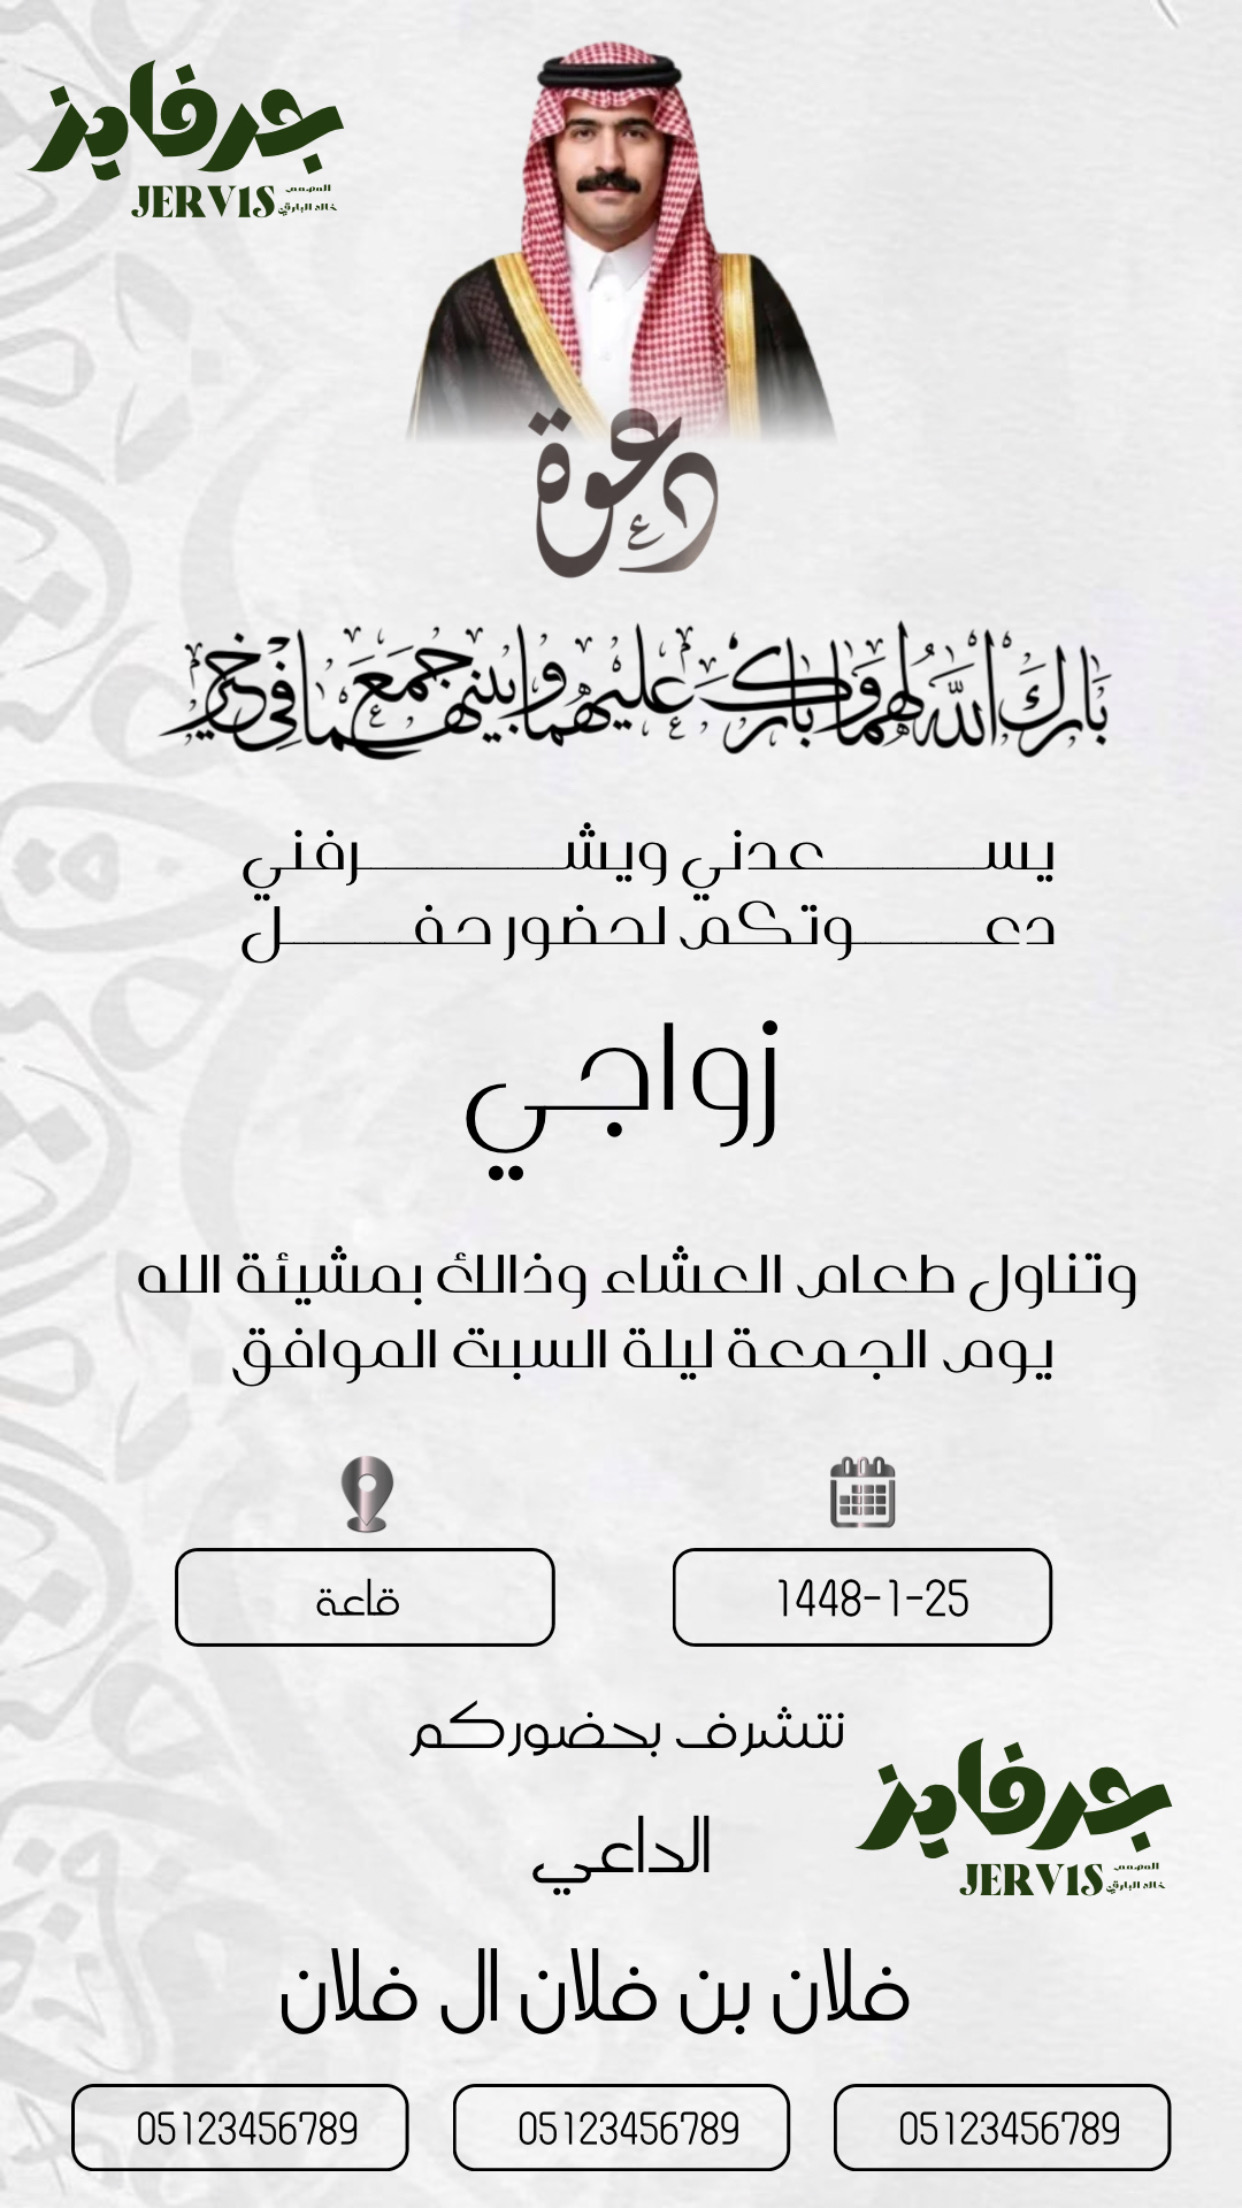 جرفايز
JERV1S
المصمم
خالد البارقي
دعوة
بَارَكَ اللَّهُ لَهُمَا وَبَارَكَ عَلَيْهِمَا وَجَمَعَ بَيْنَهُمَا فِي خَيْر
يســـــــعدني ويشـــــــــرفني
دعـــــــوتكم لحضور حفـــــــل
زواجي
وتناول طعام العشاء وذالك بمشيئة الله
يوم الجمعة ليلة السبت الموافق
1448-1-25
قاعة
نتشرف بحضوركم
جرفايز
JERV1S
المصمم
خالد البارقي
الداعي
فلان بن فلان ال فلان
05123456789
05123456789
05123456789